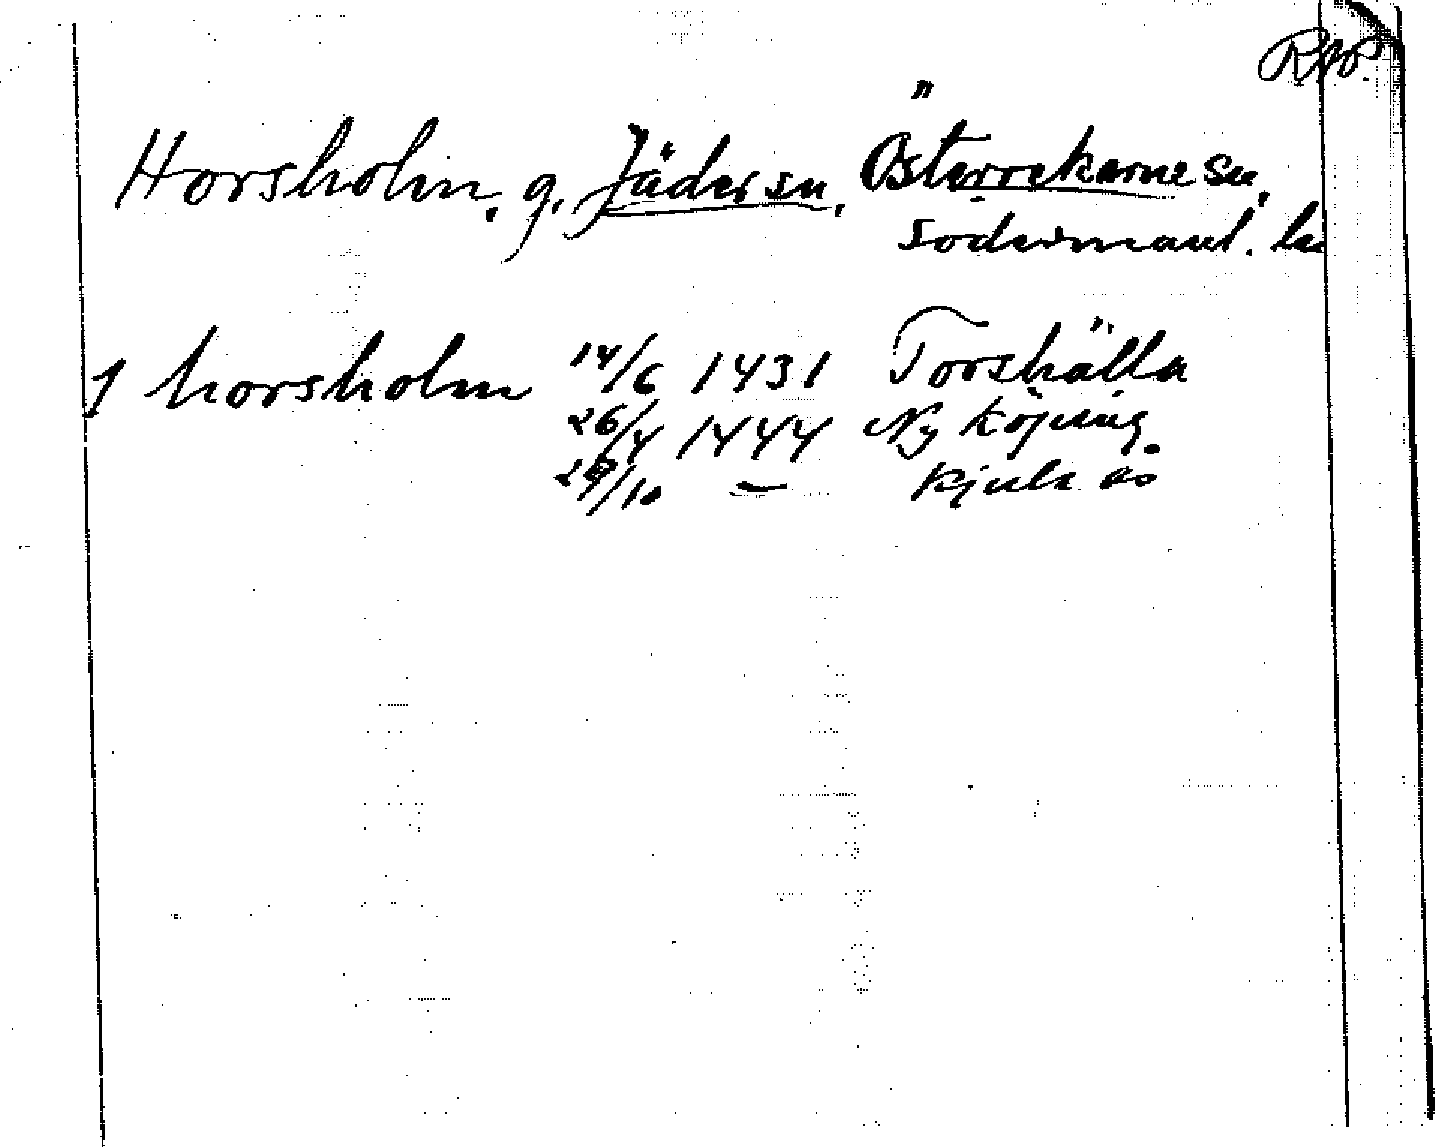 RAP
Horsholm, g, Jäder sn, Österrekarne sn,
Södermanl. län
1 horsholm 14/6 1431 Torshälla
26/4 1444 Nyköping
/10 — Kjula ås